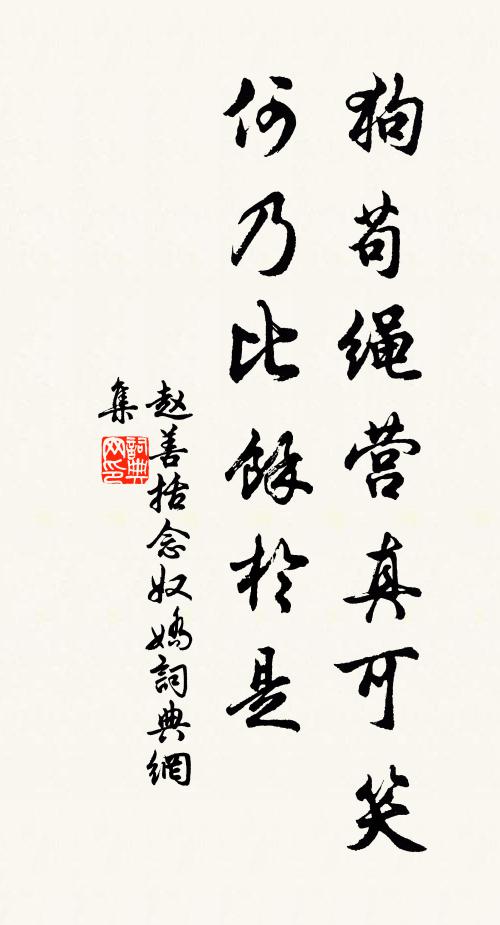 狗苟绳营真可笑
何乃比馀於是
赵善括念奴娇詞典網
集
詞典网印